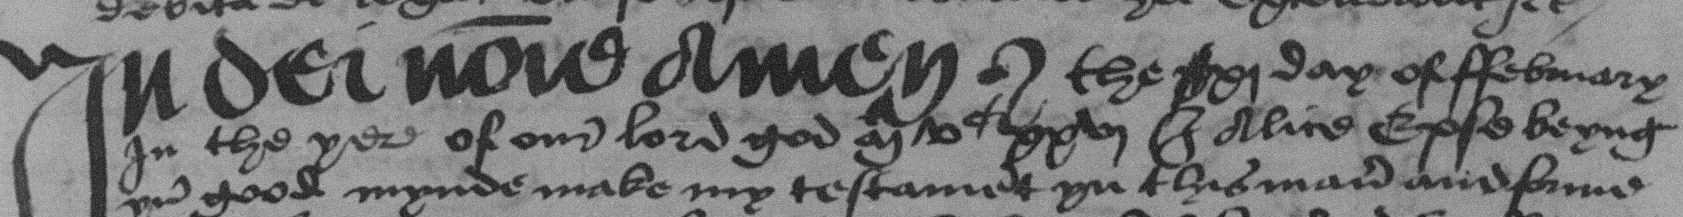 In dei nōīe Amen the xxj day of ffebruary
In the yere of our lord god m vᶜ xxvj I Alice Epse beyng
yn good mynde make my testamēt yn this mañ and forme